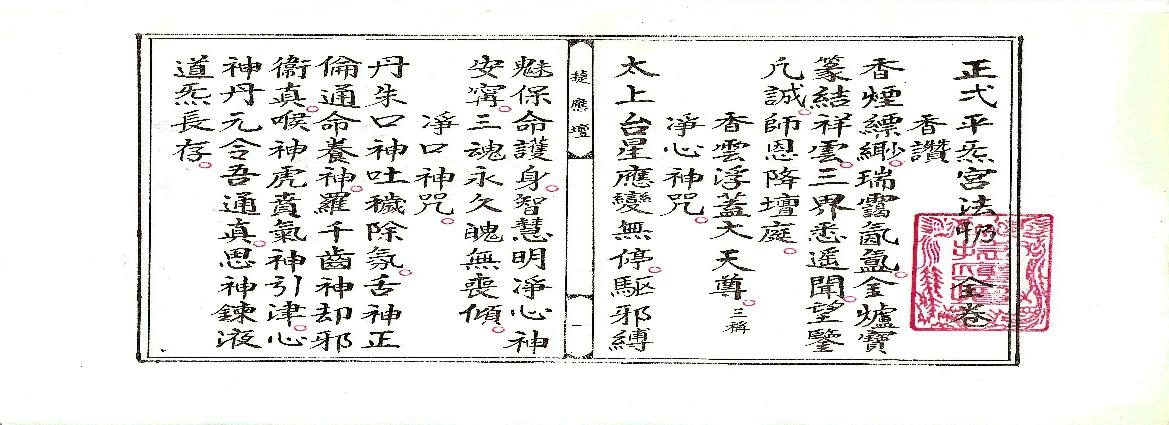 正弌平炁宮法全卷
香讚
香煙縹緲。瑞靄氤氳。金爐寶
篆結祥雲。三界悉遥聞。望鑒
凡誠。師恩降壇庭。
香雲浮蓋大天尊。三稱
淨心神咒。
太上台星應變無停。驅邪縛
捷應壇
一
魅保命護身。智慧明淨心神
安寧。三魂永久魄無喪傾。
淨口神咒。
丹朱口神吐穢除氛。舌神正
倫通命養神。羅千齒神却邪
衛真。喉神虎賁氣神引津。心
神丹元令吾通真。思神鍊液
道炁長存。